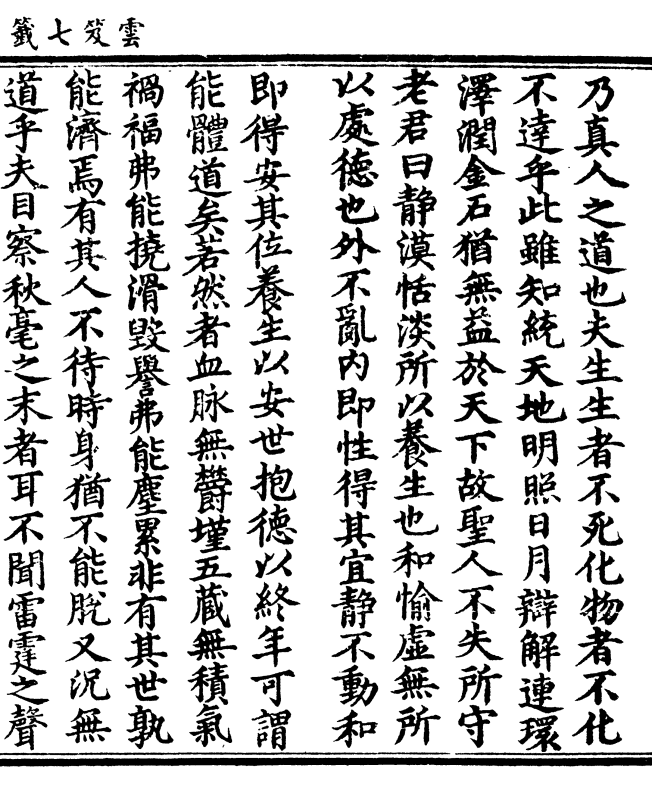 雲笈七籤
乃真人之道也夫生生者不死化物者不化
不達乎此雖知統天地明照日月辯解連環
澤潤金石猶無益於天下故聖人不失所守
老君曰静漠恬淡所以養生也和愉虛無所
以處德也外不亂内即性得其宜静不動和
即得安其位養生以安世抱德以終年可謂
能體道矣若然者血脉無欝墐五藏無積氣
禍福弗能撓滑毀譽弗能塵累非有其世孰
能濟焉有其人不待時身猶不能脫又況無
道乎夫目察秋毫之末者耳不聞雷霆之聲